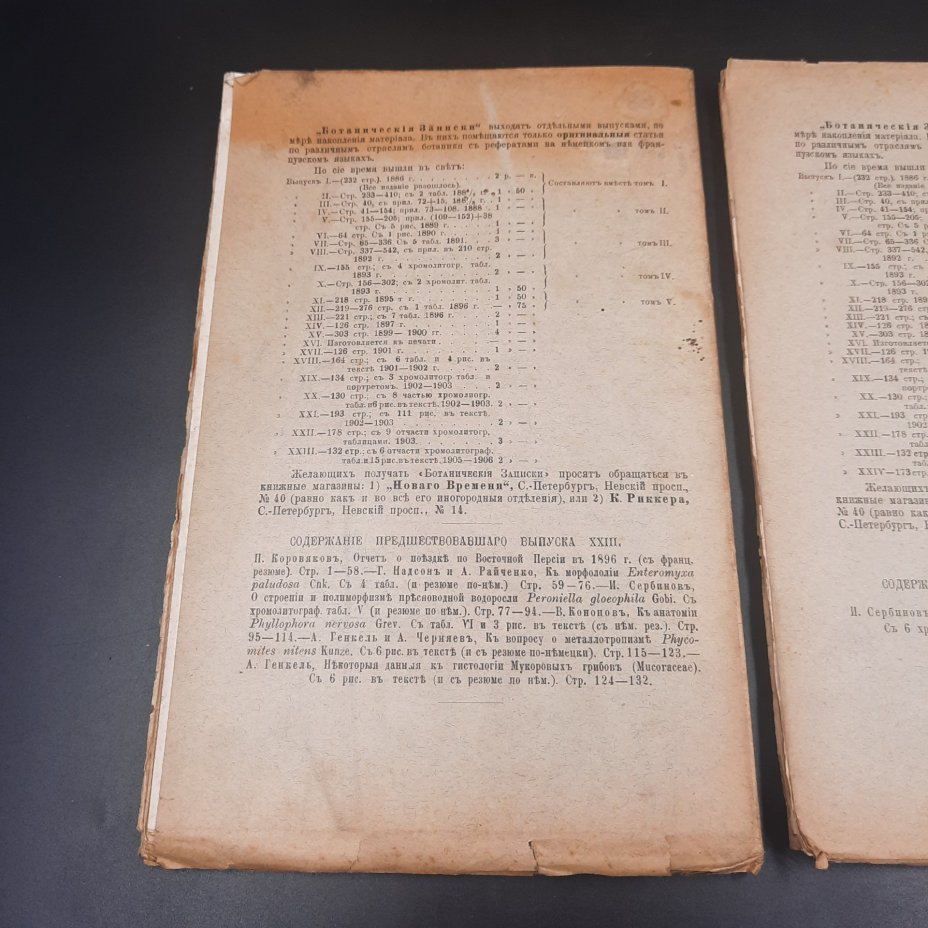 „Ботаническія Записки“ выходятъ отдѣльными выпусками, по
мѣрѣ накопленія матеріала. Въ нихъ помѣщаются только оригинальныя статьи
по различнымъ отраслямъ ботаники съ рефератами на нѣмецкомъ или фран-
цузскомъ языкахъ.
По сіе время вышли въ свѣтъ:
Выпускъ I.—(232 стр.). 1886 г. . . . . . . . . . 2 р. — к.
(Все изданіе разошлось).
Составляютъ вмѣстѣ томъ I.
„ II.—Стр. 233—410; съ 2 табл. 1 „ 50 „
„ III.—Стр. 40, съ прил. 72+15, 1 „ — „
„ IV.—Стр. 41—154; прил. 73—108. 1888 г. 1 „ — „
„ томъ II.
„ V.—Стр. 155—205; прил. (109—152)+38
стр. Съ 5 рис. 1889 г. . . . . . 1 „ — „
„ VI.—64 стр. Съ 1 рис. 1890 г. . . . . . 1 „ — „
„ VII.—Стр. 65—336 Съ 5 табл. 1891. . . . 3 „ — „
„ томъ III.
„ VIII.—Стр. 337—542, съ прил. въ 210 стр.
1892 г. . . . . . . . . . . . 2 „ — „
„ IX.—155 стр.; съ 4 хромолитогр. табл.
1893 г. . . . . . . . . . . . 2 „ — „
„ томъ IV.
„ X.—Стр. 156—302; съ 2 хромолит. табл.
1893 г. . . . . . . . . . . . 1 „ 50 „
„ XI.—218 стр. 1895 г. . . . . . . . . . 1 „ 50 „
„ томъ V.
„ XII.—219—276 стр. съ 1 табл. 1896 г. . — „ 75 „
„ XIII.—221 стр.; съ 7 табл. 1896 г. . . . . 2 „ — „
„ XIV.—126 стр. 1897 г. . . . . . . . . . 1 „ — „
„ XV.—303 стр. 1899—1900 гг. . . . . . . 4 „ — „
„ XVI. Изготовляется къ печати . . . . . . — „ — „
„ XVII.—126 стр. 1901 г. . . . . . . . . . 1 „ — „
„ XVIII.—164 стр.; съ 6 табл. и 4 рис. въ
текстѣ 1901—1902 г. . . . . . . 2 „ — „
„ XIX.—134 стр.; съ 3 хромолитогр табл. и
портретомъ. 1902—1903 . . . . 2 „ — „
„ XX.—130 стр.; съ 8 частью хромолитогр.
табл. и 6 рис. въ текстѣ. 1902—1903. 2 „ — „
„ XXI.—193 стр.; съ 111 рис. въ текстѣ.
1902—1903 . . . . . . . . . . 2 „ — „
„ XXII.—178 стр.; съ 9 отчасти хромолитогр.
таблицами. 1903. . . . . . . . . 3 „ — „
„ XXIII.—132 стр.; съ 6 отчасти хромолитограф.
табл. и 15 рис. въ текстѣ. 1905—1906 2 „ — „
Желающихъ получать «Ботаническія Записки» просятъ обращаться въ
книжные магазины: 1) „Новаго Времени“, С.-Петербургъ, Невскій просп.,
№ 40 (равно какъ и во всѣ его иногородныя отдѣленія), или 2) К. Риккера,
С.-Петербургъ, Невскій просп., № 14.
СОДЕРЖАНІЕ ПРЕДШЕСТВОВАВШАГО ВЫПУСКА XXIII.
П. Коровяковъ, Отчетъ о поѣздкѣ по Восточной Персіи въ 1896 г. (съ франц.
резюме). Стр. 1—58.—Г. Надсонъ и А. Райченко, Къ морфологіи Enteromyxa
paludosa Cnk. Съ 4 табл. (и резюме по-нѣм.) Стр. 59—76.—И. Сербиновъ,
О строеніи и полиморфизмѣ прѣсноводной водоросли Peroniella gloeophila Gobi. Съ
хромолитограф. табл. V (и резюме по нѣм.). Стр. 77—94.—В. Коноповъ, Къ анатоміи
Phyllophora nervosa Grev. Съ табл. VI и 3 рис. въ текстѣ (съ нѣм. рез.). Стр.
95—114.—А. Генкель и А. Черняевъ, Къ вопросу о металлотропизмѣ Phyco-
mites nitens Kunze. Съ 6 рис. въ текстѣ (и съ резюме по-нѣмецки). Стр. 115—123.—
А. Генкель, Нѣкоторыя данныя къ гистологіи Мукоровыхъ грибовъ (Mucoraceae).
Съ 6 рис. въ текстѣ (и съ резюме по нѣм.). Стр. 124—132.
„Ботаническія З
мѣрѣ накопленія матеріала.
по различнымъ отраслямъ
пузскомъ языкахъ.
По сіе время вышли
Выпускъ I.—(232 стр.). 1886 г.
(Все изданіе
„ II.—Стр. 233—410; съ
„ III.—Стр. 40, съ прил.
„ IV.—Стр. 41—154; прил.
„ V.—Стр. 155—205;
стр. Съ 5
„ VI.—64 стр. Съ 1 р
„ VII.—Стр. 65—336 С
„ VIII.—Стр. 337—542,
1892 г.
„ IX.—155 стр.; съ
1893 г.
„ X.—Стр. 156—302
1893 г.
„ XI.—218 стр. 189
„ XII.—219—276 ст
„ XIII.—221 стр.; съ
„ XIV.—126 стр. 18
„ XV.—303 стр. 18
„ XVI. Изготовляе
„ XVII.—126 стр. 1
„ XVIII.—164 стр.;
текстѣ
„ XIX.—134 стр.;
портре
„ XX.—130 стр.;
табл.
„ XXI.—193 стр
1902
„ XXII.—178 стр
табл
„ XXIII.—132 стр
табл
„ XXIV—173 стр.
Желающихъ
книжные магазин
№ 40 (равно как
С.-Петербургъ, Н
СОДЕРЖ
И. Сербиновъ
Съ 6 х